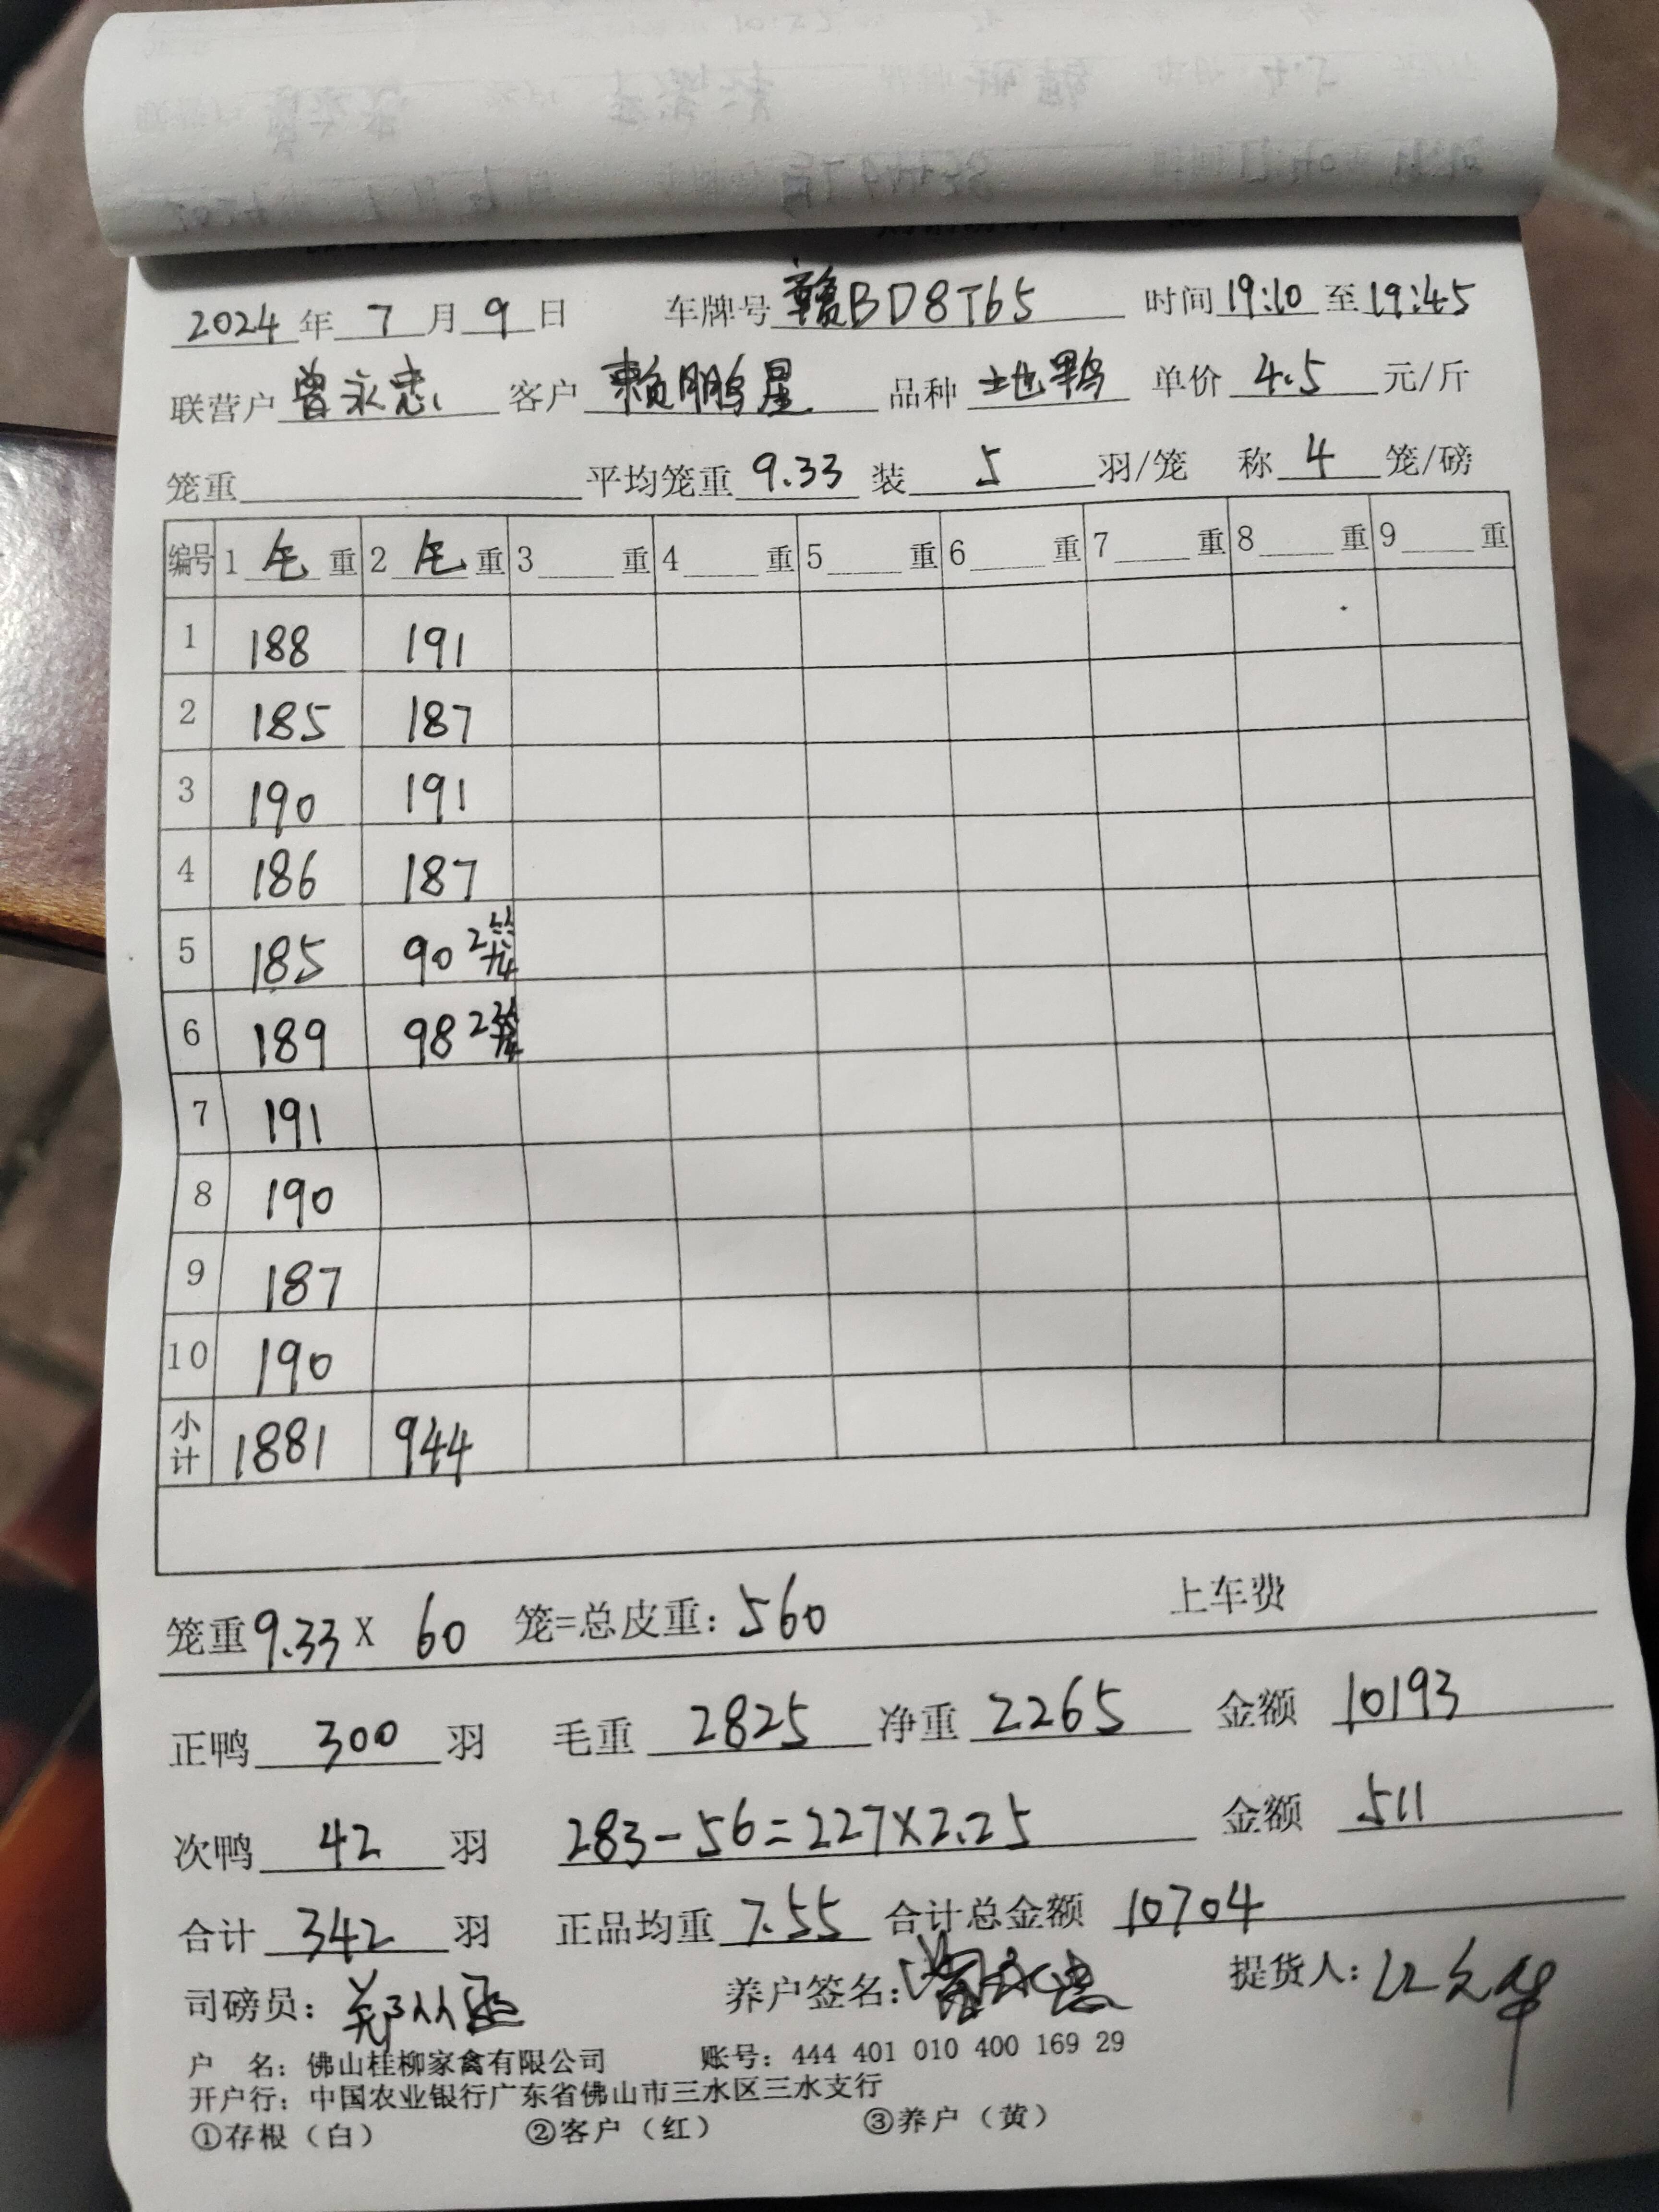 2024年7月9日 车牌号赣BD8T65 时间19:10至19:45
联营户曾永志 客户赖鹏星 品种土地鸭 单价4.5元/斤
笼重 平均笼重9.33装5羽/笼 称4笼/磅
编号 1毛重 2毛重 3重 4重 5重 6重 7重 8重 9重
1 188 191
2 185 187
3 190 191
4 186 187
5 185 90 2笼
6 189 98 2笼
7 191
8 190
9 187
10 190
小计 1881 944
笼重9.33X 60 笼=总皮重:560 上车费
正鸭300羽 毛重2825净重2265 金额10193
次鸭42羽 283-56=227×2.25 金额511
合计342羽 正品均重7.55合计总金额10704
司磅员: 养户签名: 提货人:
户 名: 佛山桂柳家禽有限公司 账号: 444 401 010 400 169 29
开户行: 中国农业银行广东省佛山市三水区三水支行
①存根(白) ②客户(红) ③养户(黄)